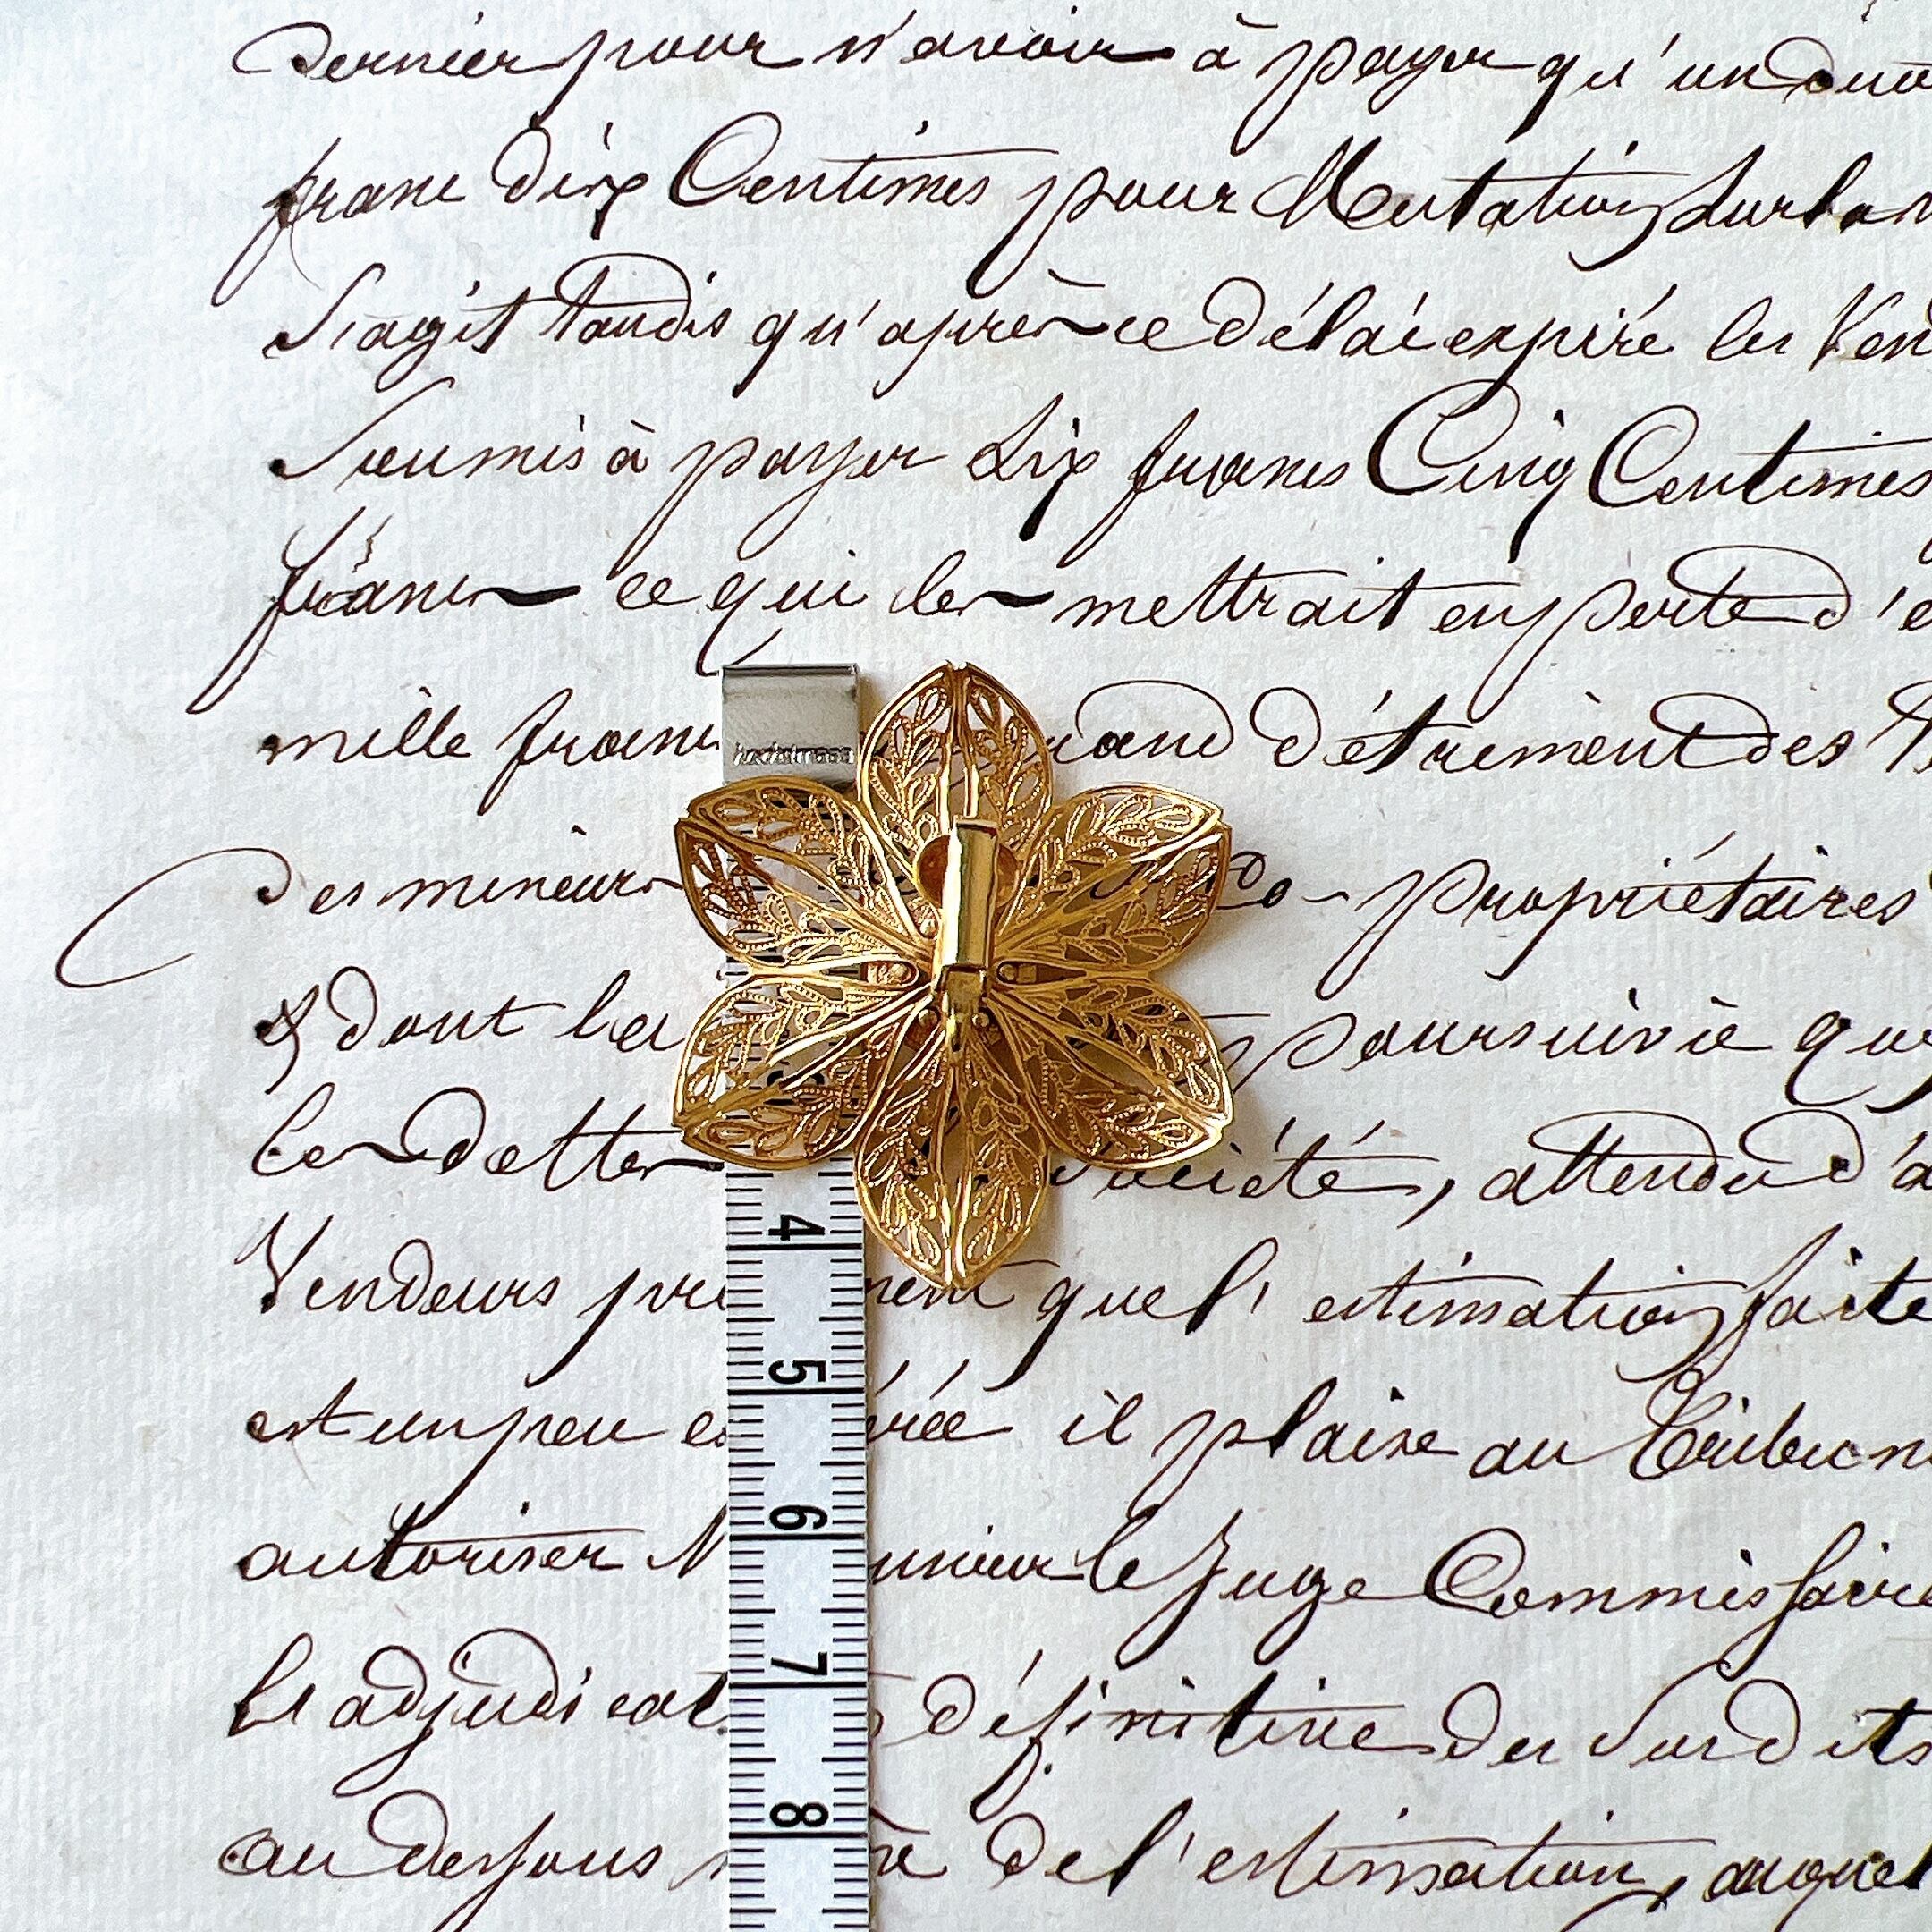 dernier pour n'avoir à payer qu'un
franc dix Centimes pour Mutation Sur
S'agit tandis qu'après ce délai expiré les Vend
Soumis à payer Six francs Cinq Centimes
francs ce qui les mettrait en perte d'
mille francs rand détriment des
hechstmass
des mineurs Co-propriétaires
& dont les poursuivie
les dettes Société, attendu d'a
4
Vendeurs ment que l'estimation faite
5
est un peu rée il plaise au Tribun
6
autoriser le Juge Commissaire
7
définitive des Susdits
8
au dessous de l'estimation, auquel